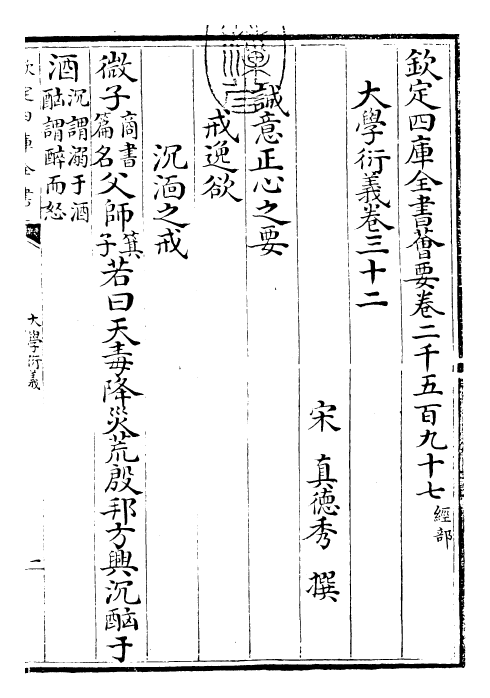 欽定四庫全書薈要卷二千五百九十七 經部
大學衍義卷三十二
宋 真德秀 撰
誠意正心之要
戒逸欲
沉湎之戒
微子商書篇名父師箕子若曰天毒降災荒殷邦方興沉酗于
酒沉謂溺于酒酗謂醉而怒
欽定四庫全書
大學衍義